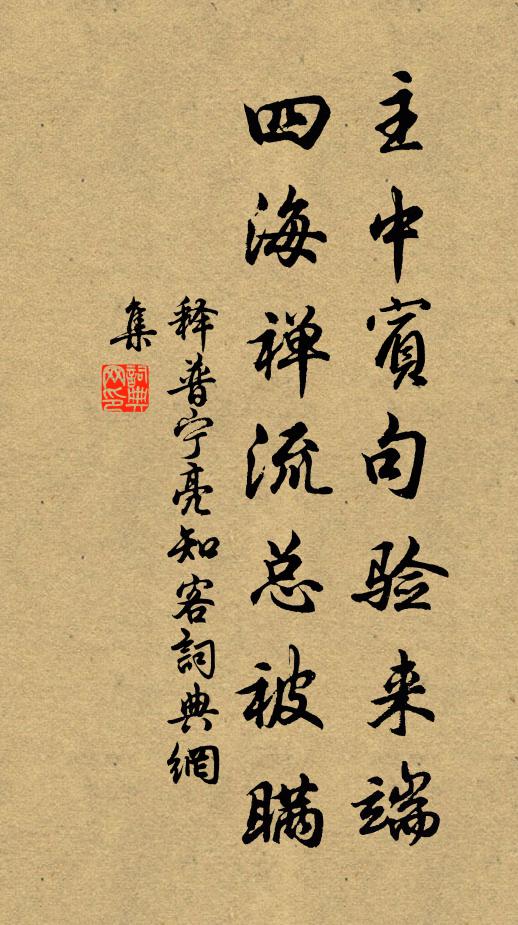 主中賓句验来端
四海禅流总被瞒
释普宁亮知客詞典網
集
詞典網印